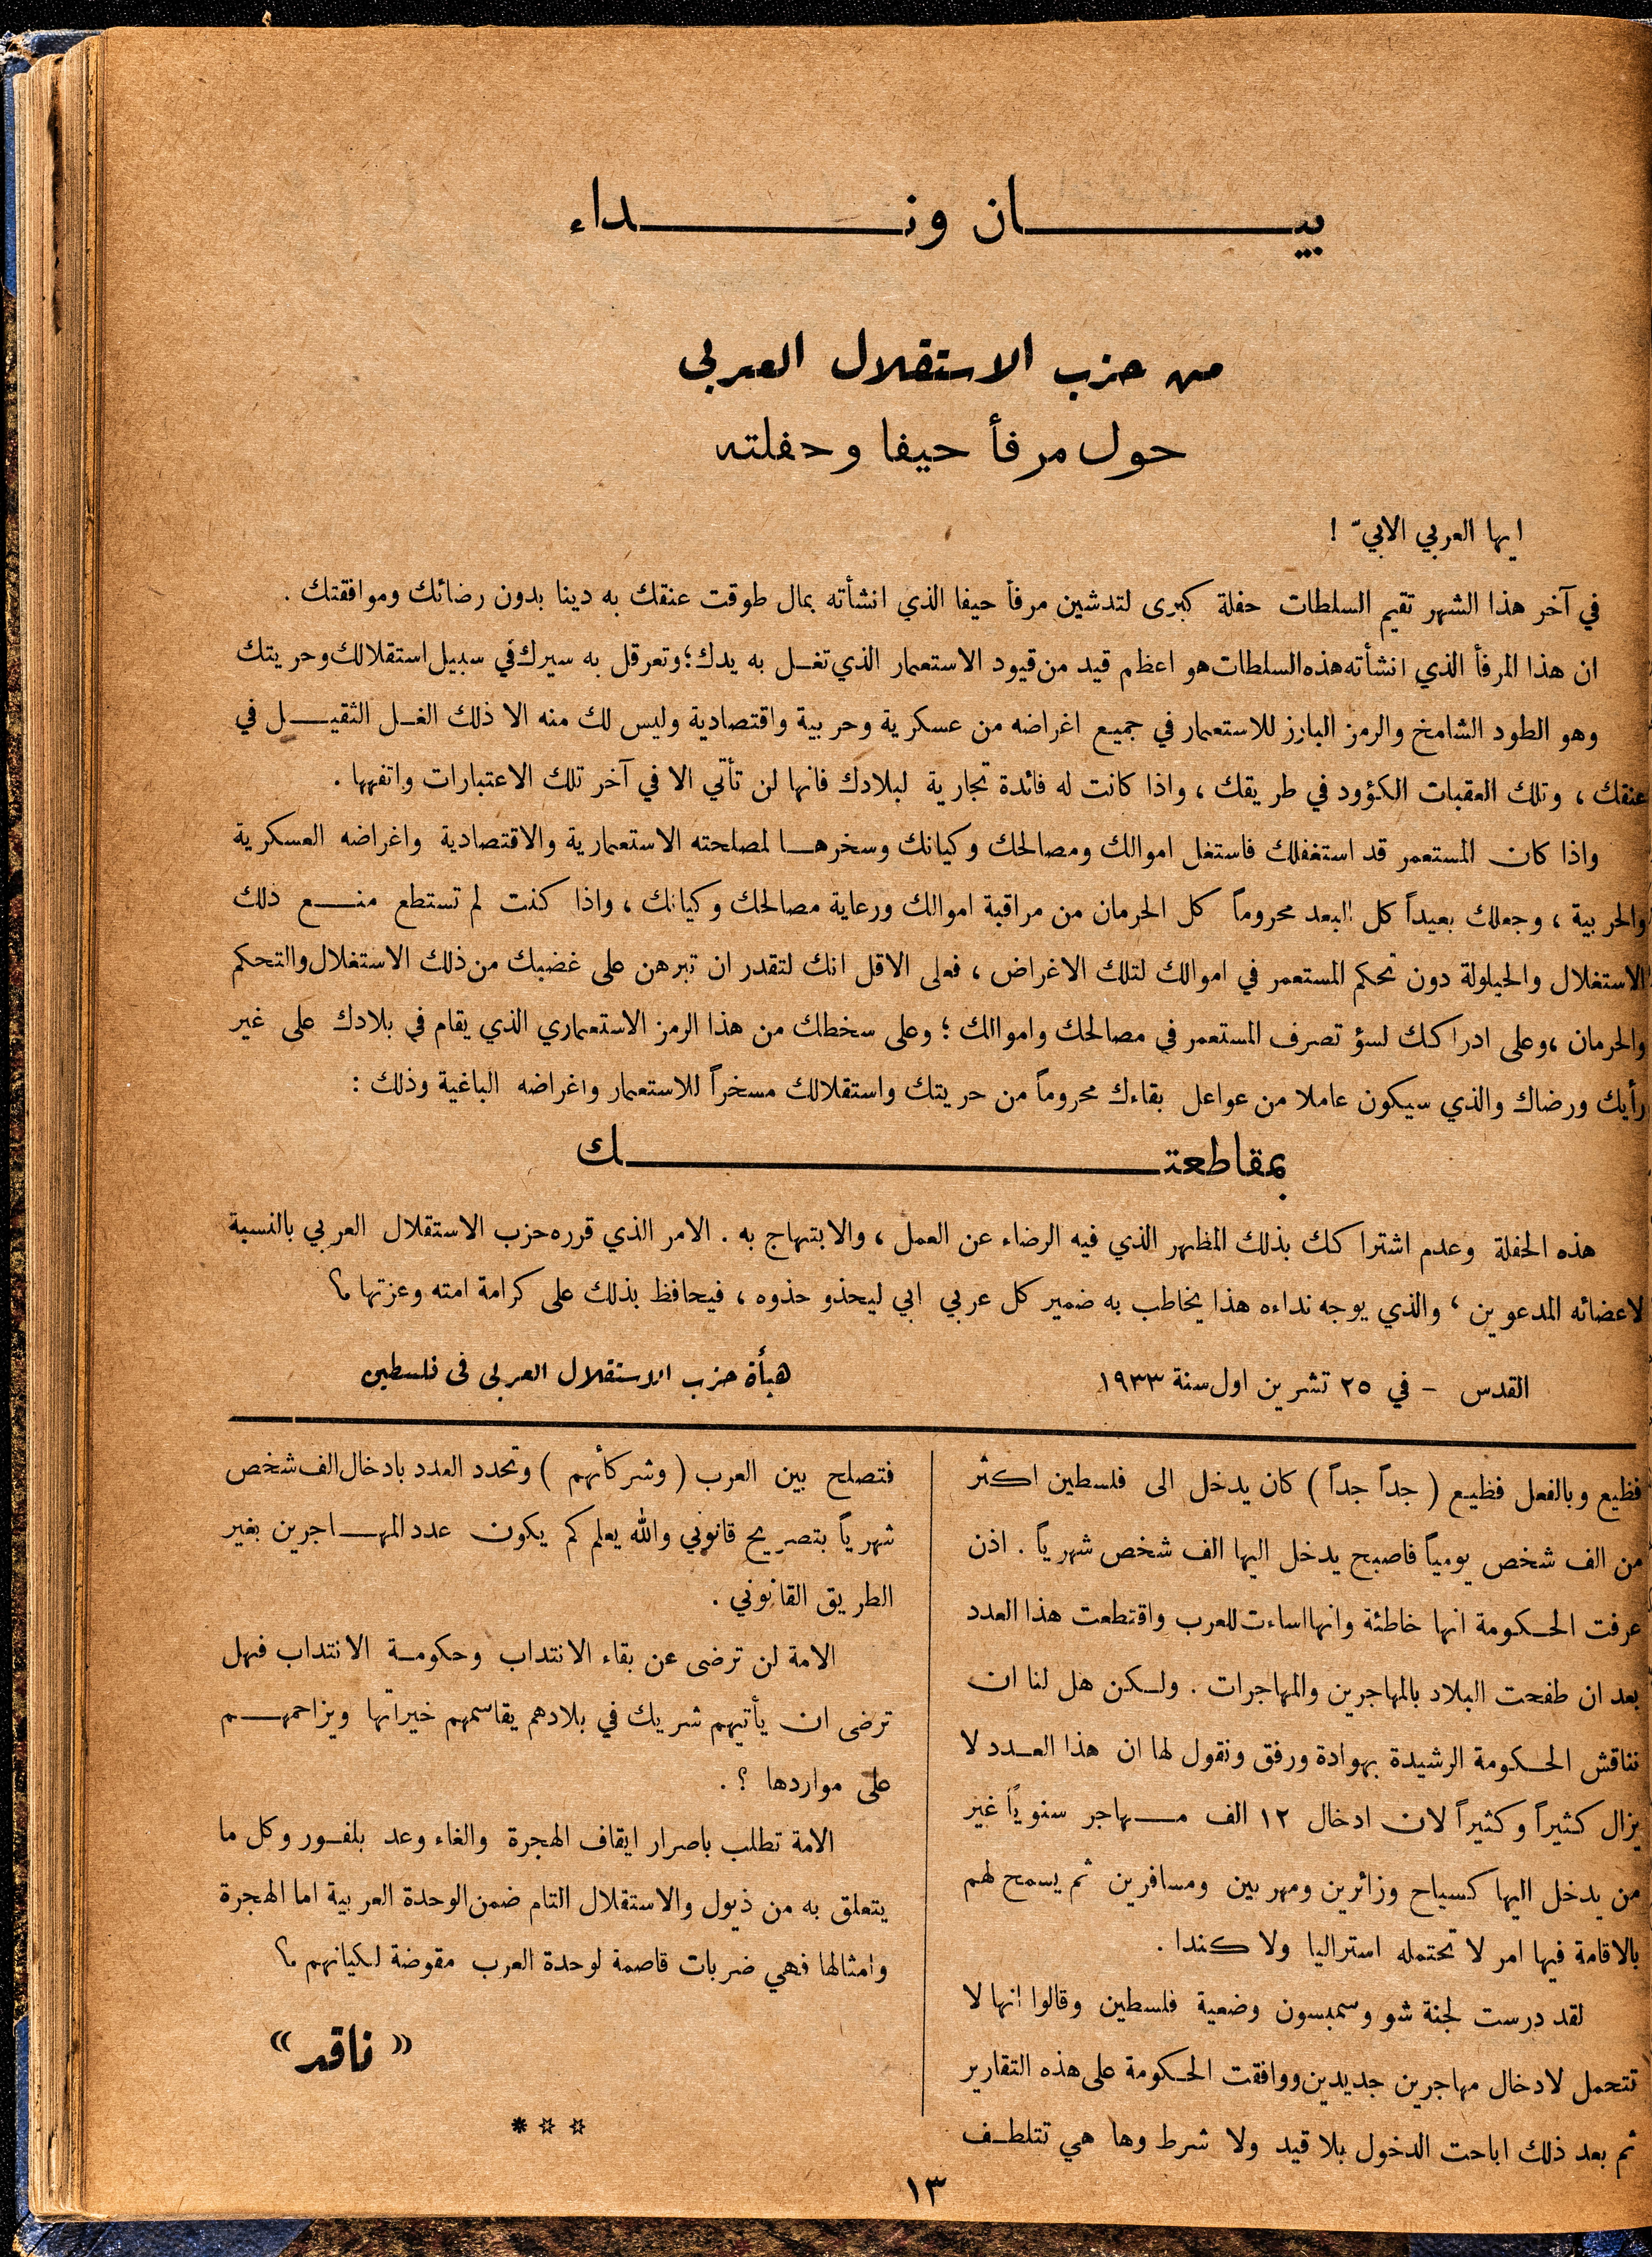 بيان ونداء
من حزب الاستقلال العربي
حول مرفأ حيفا وحفلته
ايها العربي الابيّ !
في آخر هذا الشهر تقيم السلطات حفلة كبرى لتدشين مرفأ حيفا الذي انشأته بمال طوقت عنقك به دينا بدون رضائك وموافقتك .
ان هذا المرفأ الذي انشأته هذه السلطات هو اعظم قيد من قيود الاستعمار الذي تغل به يدك ؛ وتعرقل به سيرك في سبيل استقلالك وحريتك
وهو الطود الشامخ والرمز البارز للاستعمار في جميع اغراضه من عسكرية وحربية واقتصادية وليس لك منه الا ذلك الغل الثقيل في
عنقك ، وتلك العقبات الكؤود في طريقك ، واذا كانت له فائدة تجارية لبلادك فانها لن تأتي الا في آخر تلك الاعتبارات واتفهها .
واذا كان المستعمر قد استغفلك فاستغل اموالك ومصالحك وكيانك وسخرها لمصلحته الاستعمارية والاقتصادية واغراضه العسكرية
والحربية ، وجعلك بعيداً كل البعد محروماً كل الحرمان من مراقبة اموالك ورعاية مصالحك وكيانك ، واذا كنت لم تستطع منع ذلك
الاستغلال والحيلولة دون تحكم المستعمر في اموالك لتلك الاغراض ، فعلى الاقل انك لتقدر ان تبرهن على غضبك من ذلك الاستغلال والتحكم
والحرمان ، وعلى ادراكك لسؤ تصرف المستعمر في مصالحك واموالك ؛ وعلى سخطك من هذا الرمز الاستعماري الذي يقام في بلادك على غير
رأيك ورضاك والذي سيكون عاملا من عواعل بقاءك محروماً من حريتك واستقلالك مسخراً للاستعمار واغراضه الباغية وذلك :
بمقاطعتك
هذه الحفلة وعدم اشتراكك بذلك المظهر الذي فيه الرضاء عن العمل ، والابتهاج به . الامر الذي قرره حزب الاستقلال العربي بالنسبة
لاعضائه المدعوين ، والذي يوجه نداءه هذا يخاطب به ضمير كل عربي ابي ليحذو حذوه ، فيحافظ بذلك على كرامة امته وعزتها ؟
القدس - في ٢٥ تشرين اول سنة ١٩٣٣
هيأة حزب الاستقلال العربي في فلسطين
فظيع وبالفعل فظيع ( جداً جداً ) كان يدخل الى فلسطين اكثر
من الف شخص يومياً فاصبح يدخل اليها الف شخص شهرياً . اذن
عرفت الحكومة انها خاطئة وانها اساءت للعرب واقتطعت هذا العدد
بعد ان طفحت البلاد بالمهاجرين والمهاجرات . ولكن هل لنا ان
نناقش الحكومة الرشيدة بهوادة ورفق ونقول لها ان هذا العدد لا
يزال كثيراً وكثيراً لان ادخال ١٢ الف مهاجر سنوياً غير
من يدخل اليها كسياح وزائرين ومهربين ومسافرين ثم يسمح لهم
بالاقامة فيها امر لا تحتمله استراليا ولا كندا .
لقد درست لجنة شو وسمبسون وضعية فلسطين وقالوا انها لا
تتحمل لادخال مهاجرين جديدين ووافقت الحكومة على هذه التقارير
ثم بعد ذلك اباحت الدخول بلا قيد ولا شرط وها هي تتلطف
فتصلح بين العرب ( وشركائهم ) وتحدد العدد بادخال الف شخص
شهرياً بتصريح قانوني والله يعلم كم يكون عدد المهاجرين بغير
الطريق القانوني .
الامة لن ترضى عن بقاء الانتداب وحكومة الانتداب فهل
ترضى ان يأتيهم شريك في بلادهم يقاسمهم خيراتها ويزاحمهم
على مواردها ؟ .
الامة تطلب باصرار ايقاف الهجرة والغاء وعد بلفور وكل ما
يتعلق به من ذيول والاستقلال التام ضمن الوحدة العربية اما الهجرة
وامثالها فهي ضربات قاصمة لوحدة العرب مقوضة لكيانهم ؟
« ناقد »
١٣